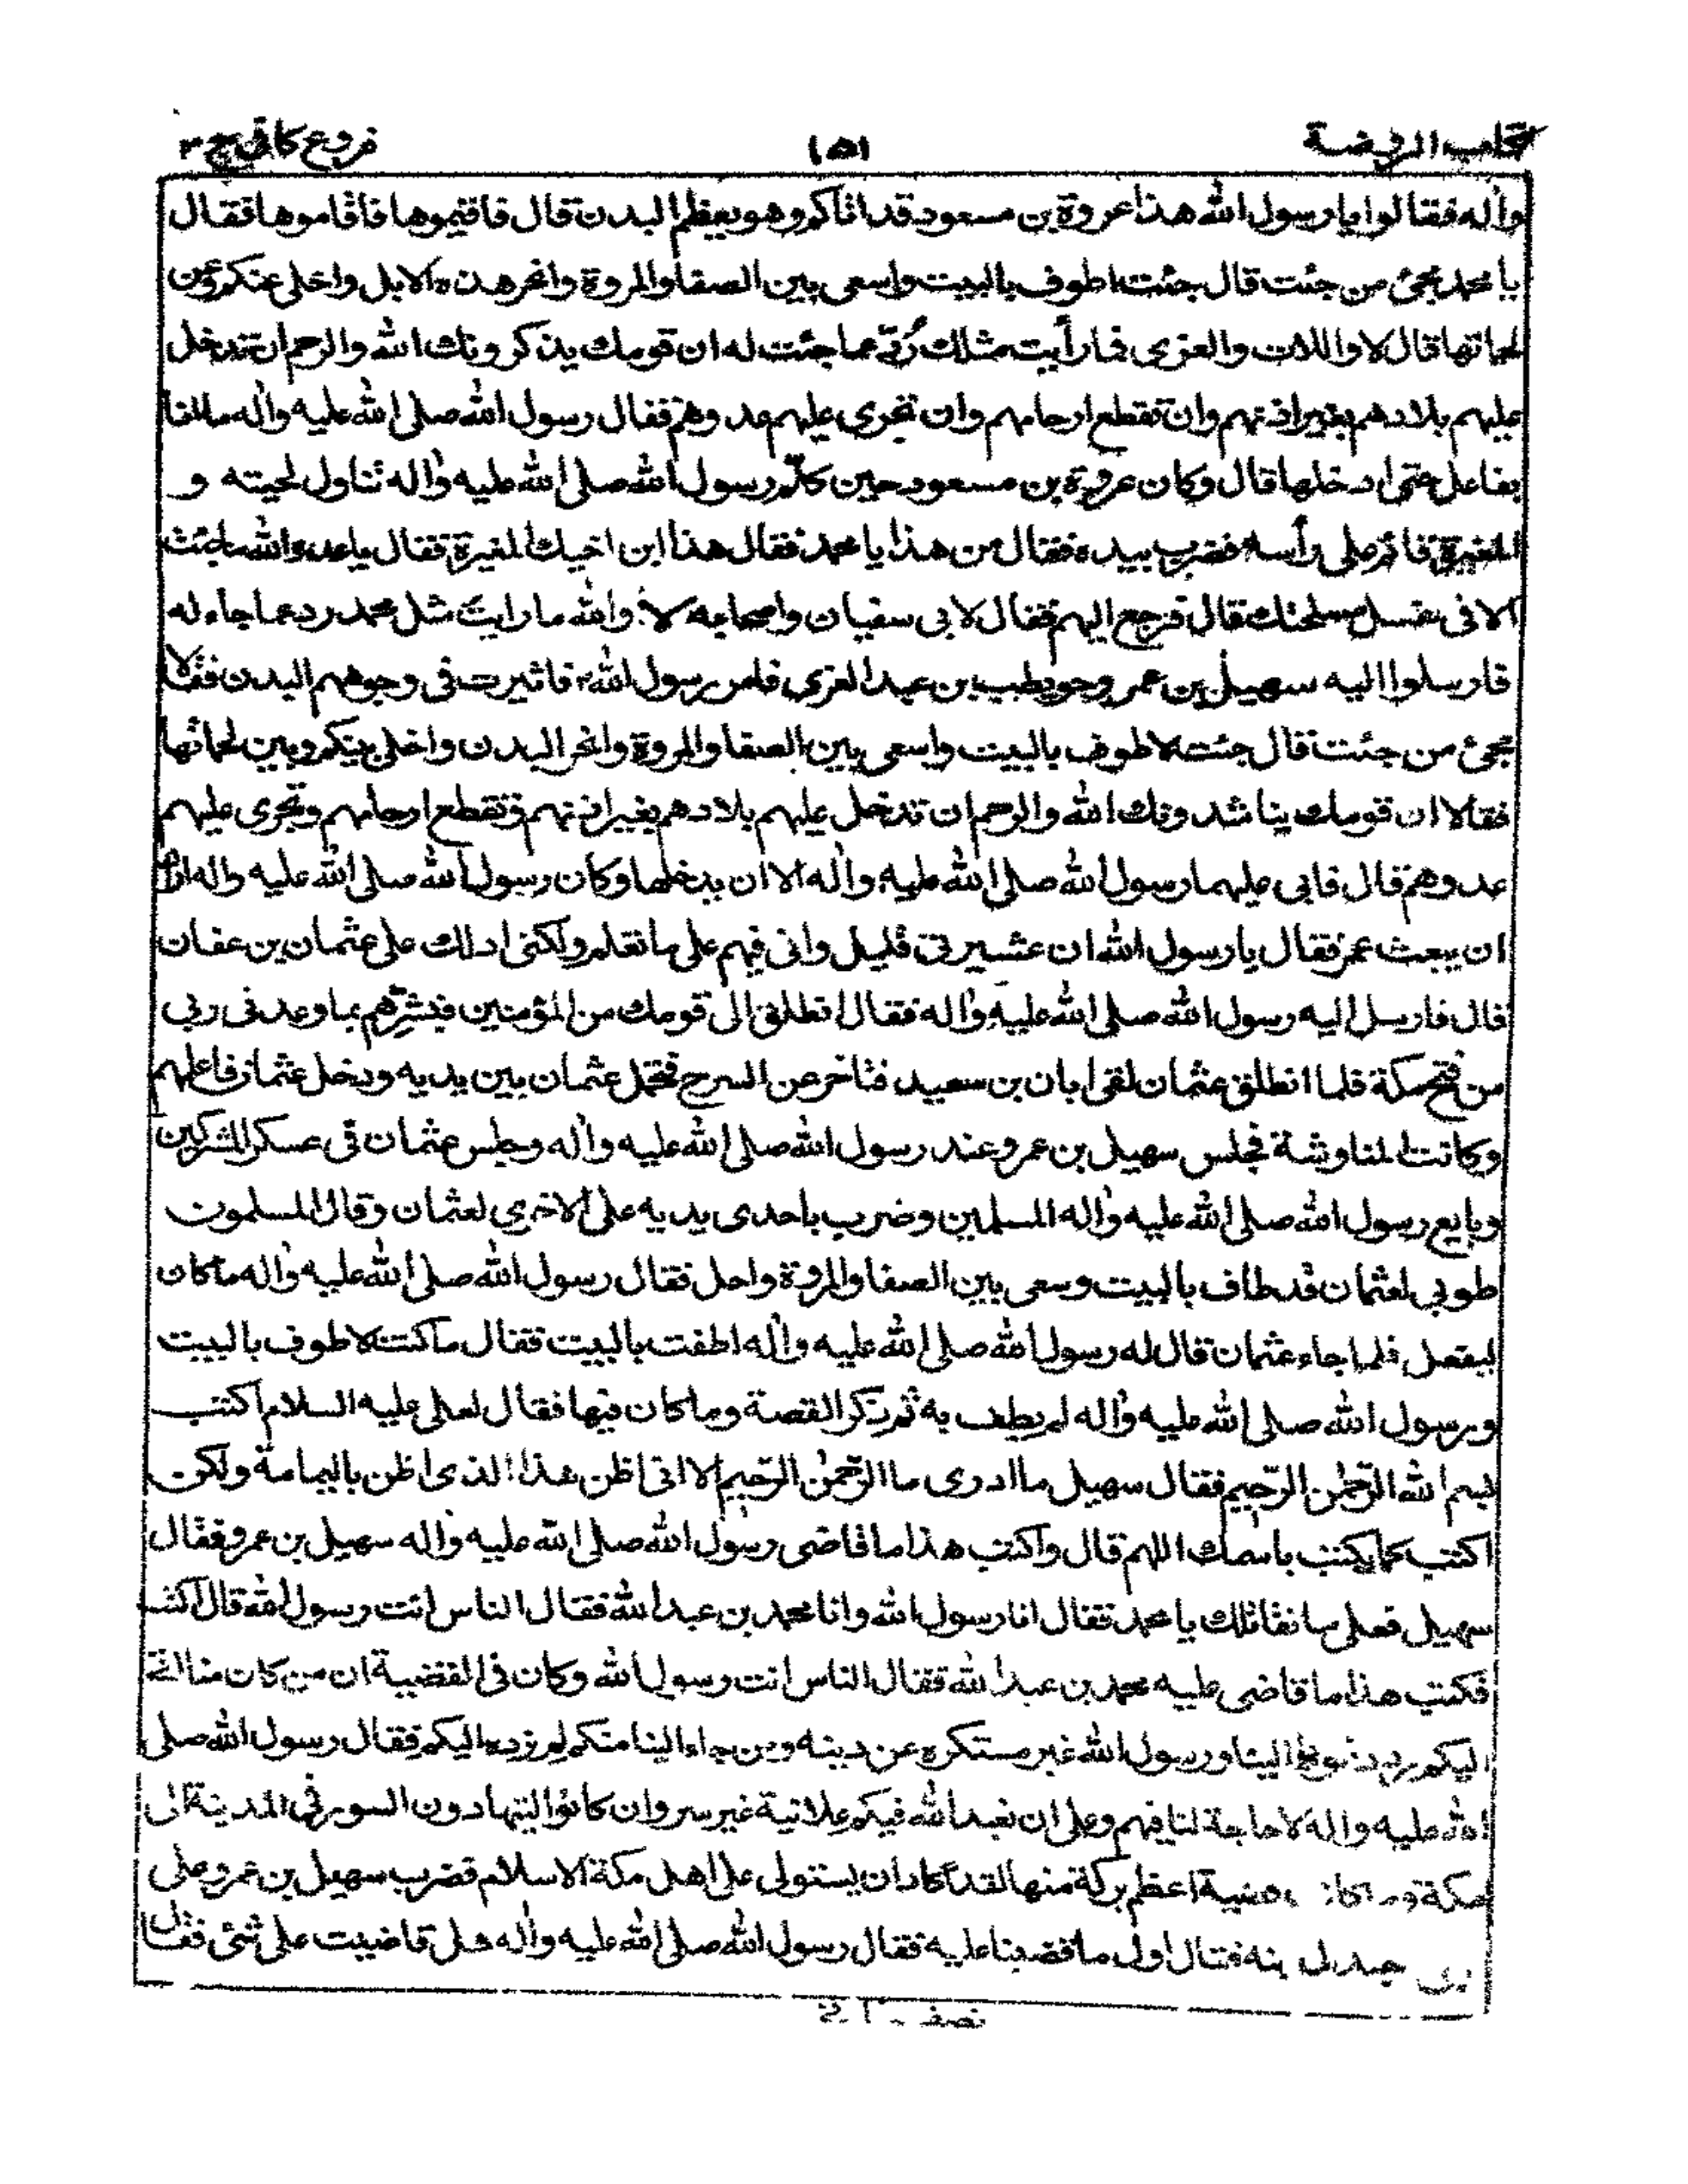 كتاب الروضة
١٥١
فروع كافي ج ٣
وآله فقالوا يا رسول الله هذا عروة بن مسعود قد اتاكم وهو يعظم البدن قال فاقيموها فاقاموها فقال
يا محمد مجئ من جئت قال جئت اطوف بالبيت واسعى بين الصفا والمروة وانحر هذه الابل واخلى عنكم وعن
لحمانها قال لا واللات والعزى فما رأيت مثلك رُدّ عما جئت له ان قومك يذكرونك الله والرحم ان تدخل
عليهم بلادهم بغير اذنهم وان تقطع ارحامهم وان تجرى عليهم عدوهم فقال رسول الله صلى الله عليه وآله ما انا
بفاعل حتى ادخلها قال وكان عروة بن مسعود حين كلّم رسول الله صلى الله عليه وآله تناول لحيته و
المغيرة قائم على رأسه فضرب بيده فقال من هذا يا محمد فقال هذا ابن اخيك المغيرة فقال يا عدو الله ما جئت
الا فى غسل سلحتك قال فرجع اليهم فقال لابى سفيان واصحابه لا والله ما رايت مثل محمد رد عما جاء له
فارسلوا اليه سهيل بن عمرو وحويطب بن عبد العزى فامر رسول الله فاثيرت فى وجوههم البدن فقالا
مجئ من جئت قال جئت لاطوف بالبيت واسعى بين الصفا والمروة وانحر البدن واخلى بينكم وبين لحمانها
فقالا ان قومك يناشدونك الله والرحم ان تدخل عليهم بلادهم بغير اذنهم وتقطع ارحامهم وتجرى عليهم
عدوهم قال فابى عليهما رسول الله صلى الله عليه وآله الا ان يدخلها وكان رسول الله صلى الله عليه وآله اراد
ان يبعث عمر فقال يا رسول الله ان عشيرتى قليل وانى فيهم على ما تعلم ولكنى ادلك على عثمان بن عفان
قال فارسل اليه رسول الله صلى الله عليه وآله فقال انطلق الى قومك من المؤمنين فبشّرهم بما وعدنى ربى
من فتح مكة فلما انطلق عثمان لقى ابان بن سعيد فتاخر عن السرج فحمل عثمان بين يديه ودخل عثمان فاعلمهم
وكانت المناوشة فجلس سهيل بن عمرو عند رسول الله صلى الله عليه وآله وجلس عثمان فى عسكر المشركين
وبايع رسول الله صلى الله عليه وآله المسلمين وضرب باحدى يديه على الاخرى لعثمان وقال المسلمون
طوبى لعثمان قد طاف بالبيت وسعى بين الصفا والمروة واحل فقال رسول الله صلى الله عليه وآله ما كان
ليفعل فلما جاء عثمان قال له رسول الله صلى الله عليه وآله اطفت بالبيت فقال ما كنت لاطوف بالبيت
ورسول الله صلى الله عليه وآله لم يطف به ثم ذكر القصة وما كان فيها فقال لعلى عليه السلام اكتب
بسم الله الرّحمن الرّحيم فقال سهيل ما ادرى ما الرّحمن الرّحيم الا انى اظن هذا الذى اظن باليمامة ولكن
اكتب كما يكتب باسمك اللهم قال واكتب هذا ما قاضى رسول الله صلى الله عليه وآله سهيل بن عمرو فقال
سهيل فعلى ما نقاتلك يا محمد فقال انا رسول الله وانا محمد بن عبد الله فقال الناس انت رسول الله قال اكتب
فكتب هذا ما قاضى عليه محمد بن عبد الله فقال الناس انت رسول الله وكان فى القضية ان من كان منا اتى
اليكم رددتموه الينا ورسول الله غير مستكره عن دينه ومن جاء الينا منكم لم نرده اليكم فقال رسول الله صلى
الله عليه وآله لا حاجة لنا فيهم وعلى ان نعبد الله فيكم علانية غير سر وان كانوا ليتهادون السور فى المدينة الى
مكة وما كان قضية اعظم بركة منها لقد كاد ان يستولى على اهل مكة الاسلام فضرب سهيل بن عمرو على
ابى جندل ابنه فقال اول ما قضينا عليه فقال رسول الله صلى الله عليه وآله هل قاضيت على شئ فقال